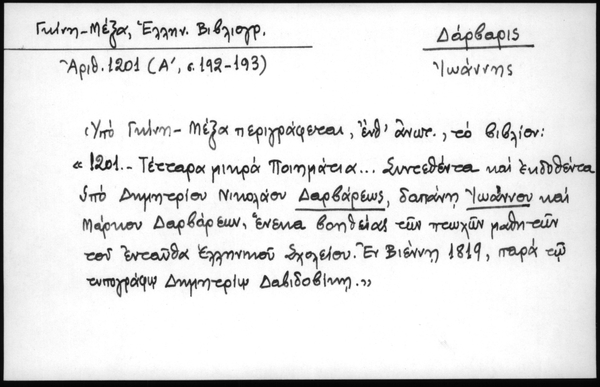 Γκίνη-Μέξα, Ἑλλην. Βιβλιογρ.
Δάρβαρις
Ἀριθ. 1201 (Α', σ. 192-193)
Ἰωάννης
Ὑπό Γκίνη-Μέξα περιγράφεται, ἔνθ' ἄνωτ., τό βιβλίον:
«1201.- Τέτταρα μικρά Ποιημάτια... Συντεθέντα καί ἐκδοθέντα
ὑπό Δημητρίου Νικολάου Δαρβάρεως, δαπάνῃ Ἰωάννου καί
Μάρκου Δαρβάρεων, ἕνεκα βοηθείας τῶν πτωχῶν μαθητῶν
τοῦ ἐνταῦθα ἑλληνικοῦ σχολείου. Ἐν Βιέννῃ 1819, παρά τῷ
τυπογράφῳ Δημητρίῳ Δαβιδοβίκῃ.»